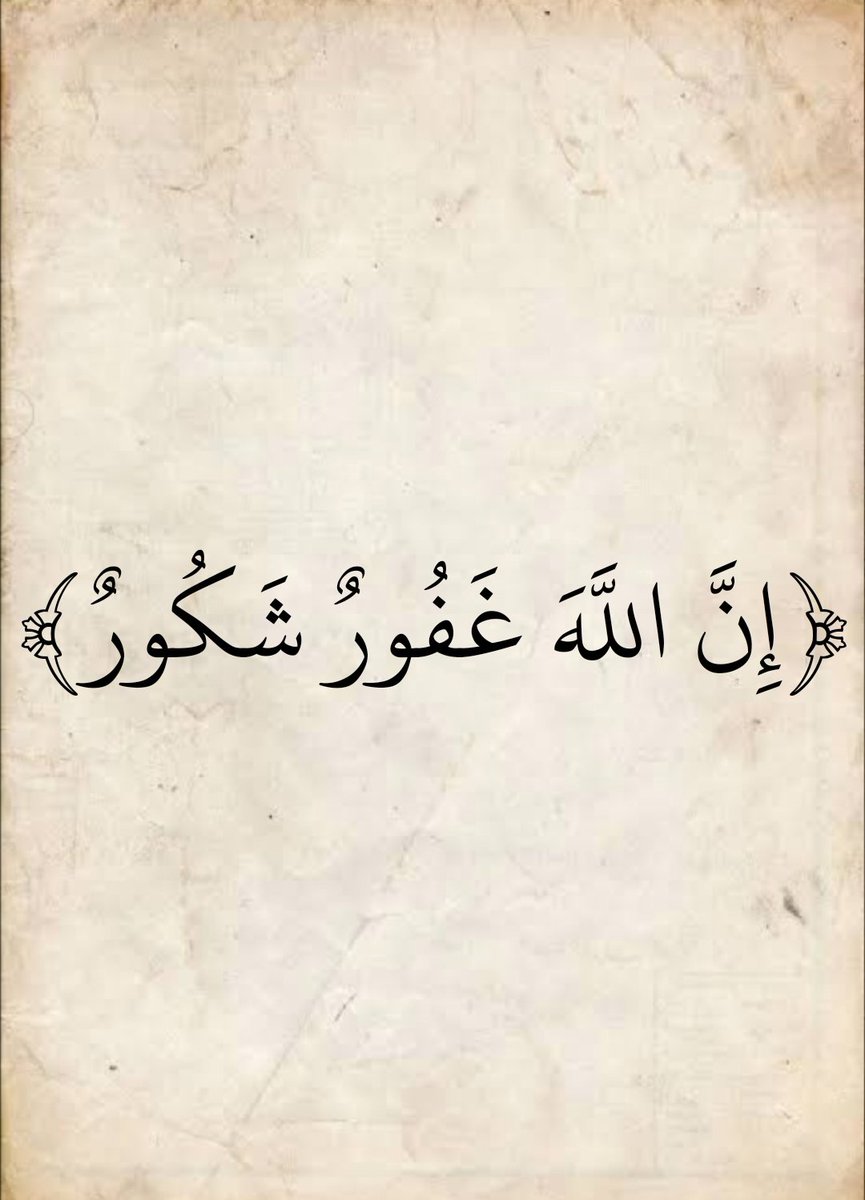 ﴿إِنَّ اللَّهَ غَفُورٌ شَكُورٌ﴾